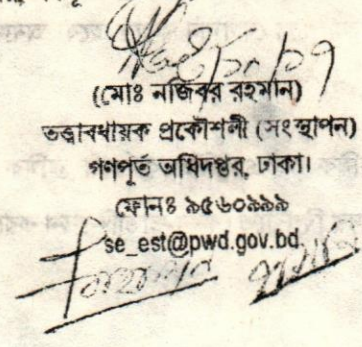 (মোঃ নজিবর রহমান)
তত্ত্বাবধায়ক প্রকৌশলী (সংস্থাপন)
গণপূর্ত অধিদপ্তর, ঢাকা।
ফোনঃ ৯৫৬০৯৯৯
se_est@pwd.gov.bd.